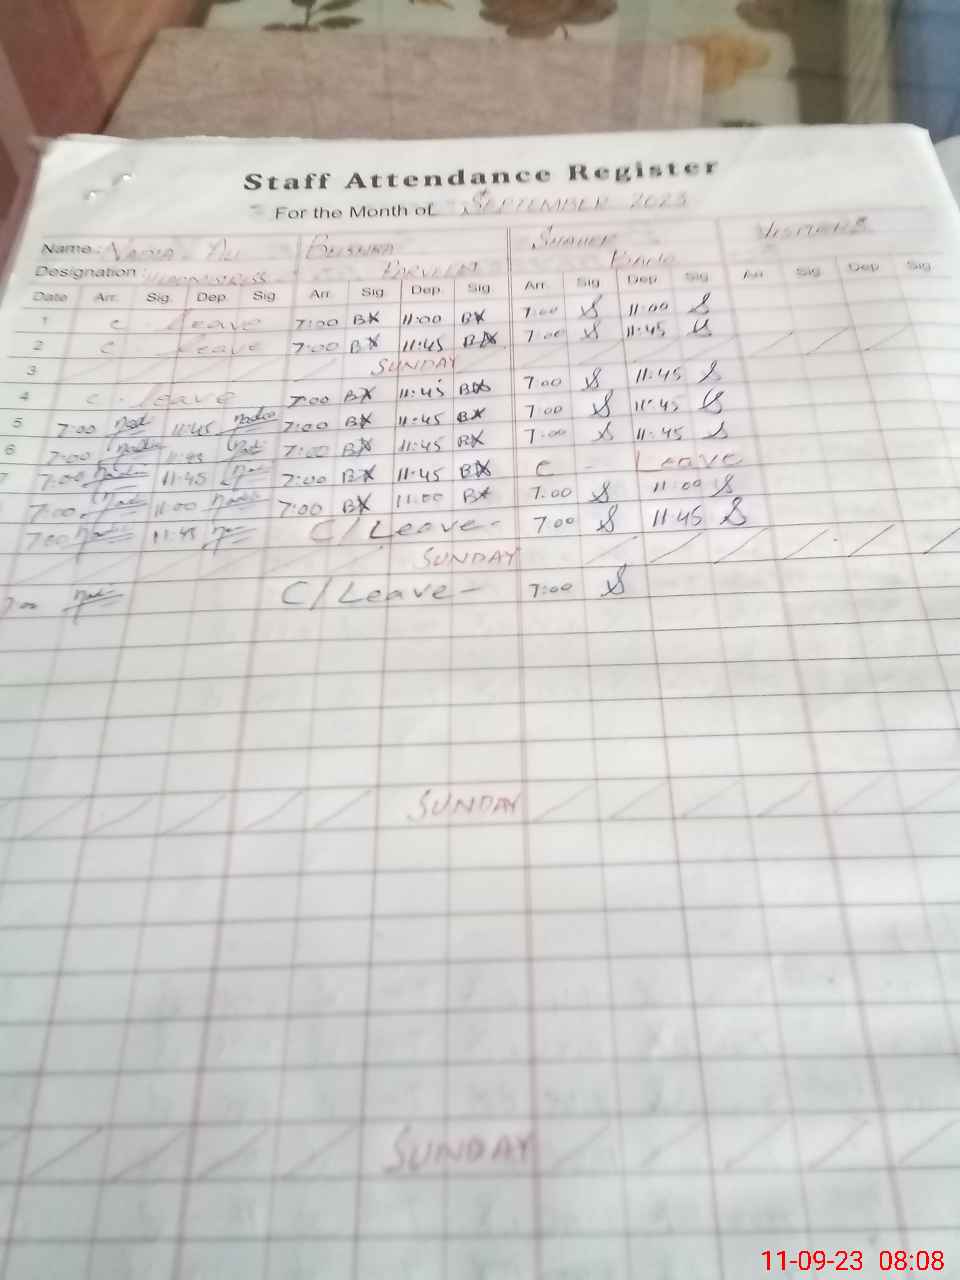 Staff Attendance Register
For the Month of SEPTEMBER 2023
Name: NADIA ALI BUSHRA SHAHER VISITORS
Designation: PARVEEN BANO
Date Arr. Sig. Dep. Sig Arr. Sig Dep. Sig. Arr. Sig Dep Sig Arr Sig Dep Sig
1 C - Leave 7:00 BX 11:00 BX 7:00 S 11:00 S
2 C - Leave 7:00 BX 11:45 BX 7:00 S 11:45 S
3 SUNDAY
4 C - leave 7:00 BX 11:45 BX 7:00 S 11:45 S
5 7:00 11:45 7:00 BX 11:45 BX 7:00 S 11:45 S
6 7:00 11:45 7:00 BX 11:45 BX 7:00 S 11:45 S
7 7:00 11:45 7:00 BX 11:45 BX C - Leave
7:00 11:00 7:00 BX 11:00 BX 7:00 S 11:00 S
7:00 11:45 C/Leave - 7:00 S 11:45 S
SUNDAY
7:00 C/Leave - 7:00 S
SUNDAY
SUNDAY
11-09-23 08:08